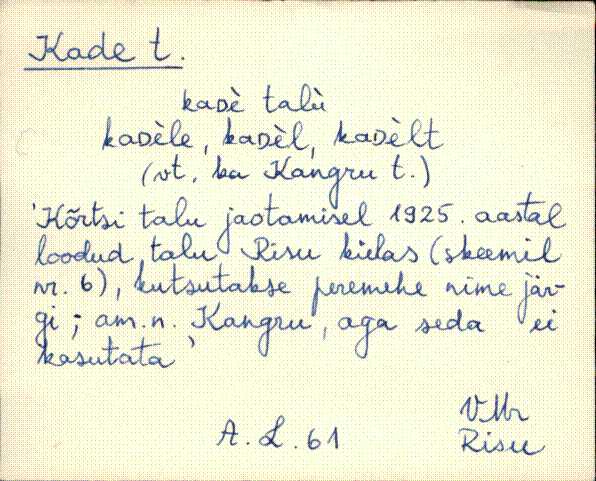 Kade t.
kaᴅè talù
kaᴅèle, kaᴅèl, kaᴅèlt
(vt. ka Kangru t.)
'Kõrtsi talu jaotamisel 1925. aastal
loodud talu Risu külas (skeemil
nr. 6), kutsutakse peremehe nime jär-
gi; am.n. Kangru, aga seda ei
kasutata'
VMr
A. L. 61
Risu